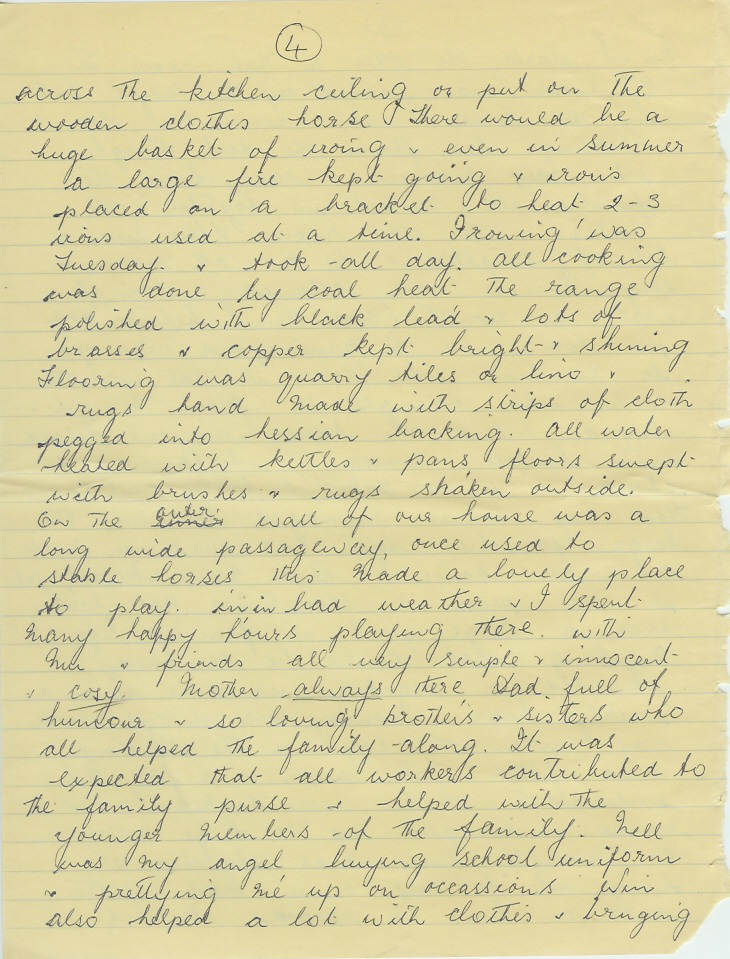 4
across the kitchen ceiling or put on the
wooden clothes horse There would be a
huge basket of iroing & even in summer
a large fire kept going & irons
placed on a bracket to heat 2-3
irons used at a time. Irowing was
Tuesday. & took all day. all cooking
was done by coal heat the range
polished with black lead & lots of
brasses & copper kept bright & shining
Flooring was quarry tiles or lino &
rugs hand made with strips of cloth
pegged into hessian backing. all water
heated with kettles & pans floors swept
with brushes & rugs shaken outside.
On the outer wall of our house was a
long wide passagencey, once used to
stable horses this made a lovely place
to play. in in bad weather & I spent
many happy hours playing there. with
& friends all very simple & innocent
& cosy. Mother always there Dad full of
humour & so loving brothers & sisters who
all helped the family along. It was
expected that all workers contributed to
the family purse & helped with the
younger members of the family. Nell
was my angel buying school uniform
& prettying me up on occassions Win
also helped a lot with clothes & bringing